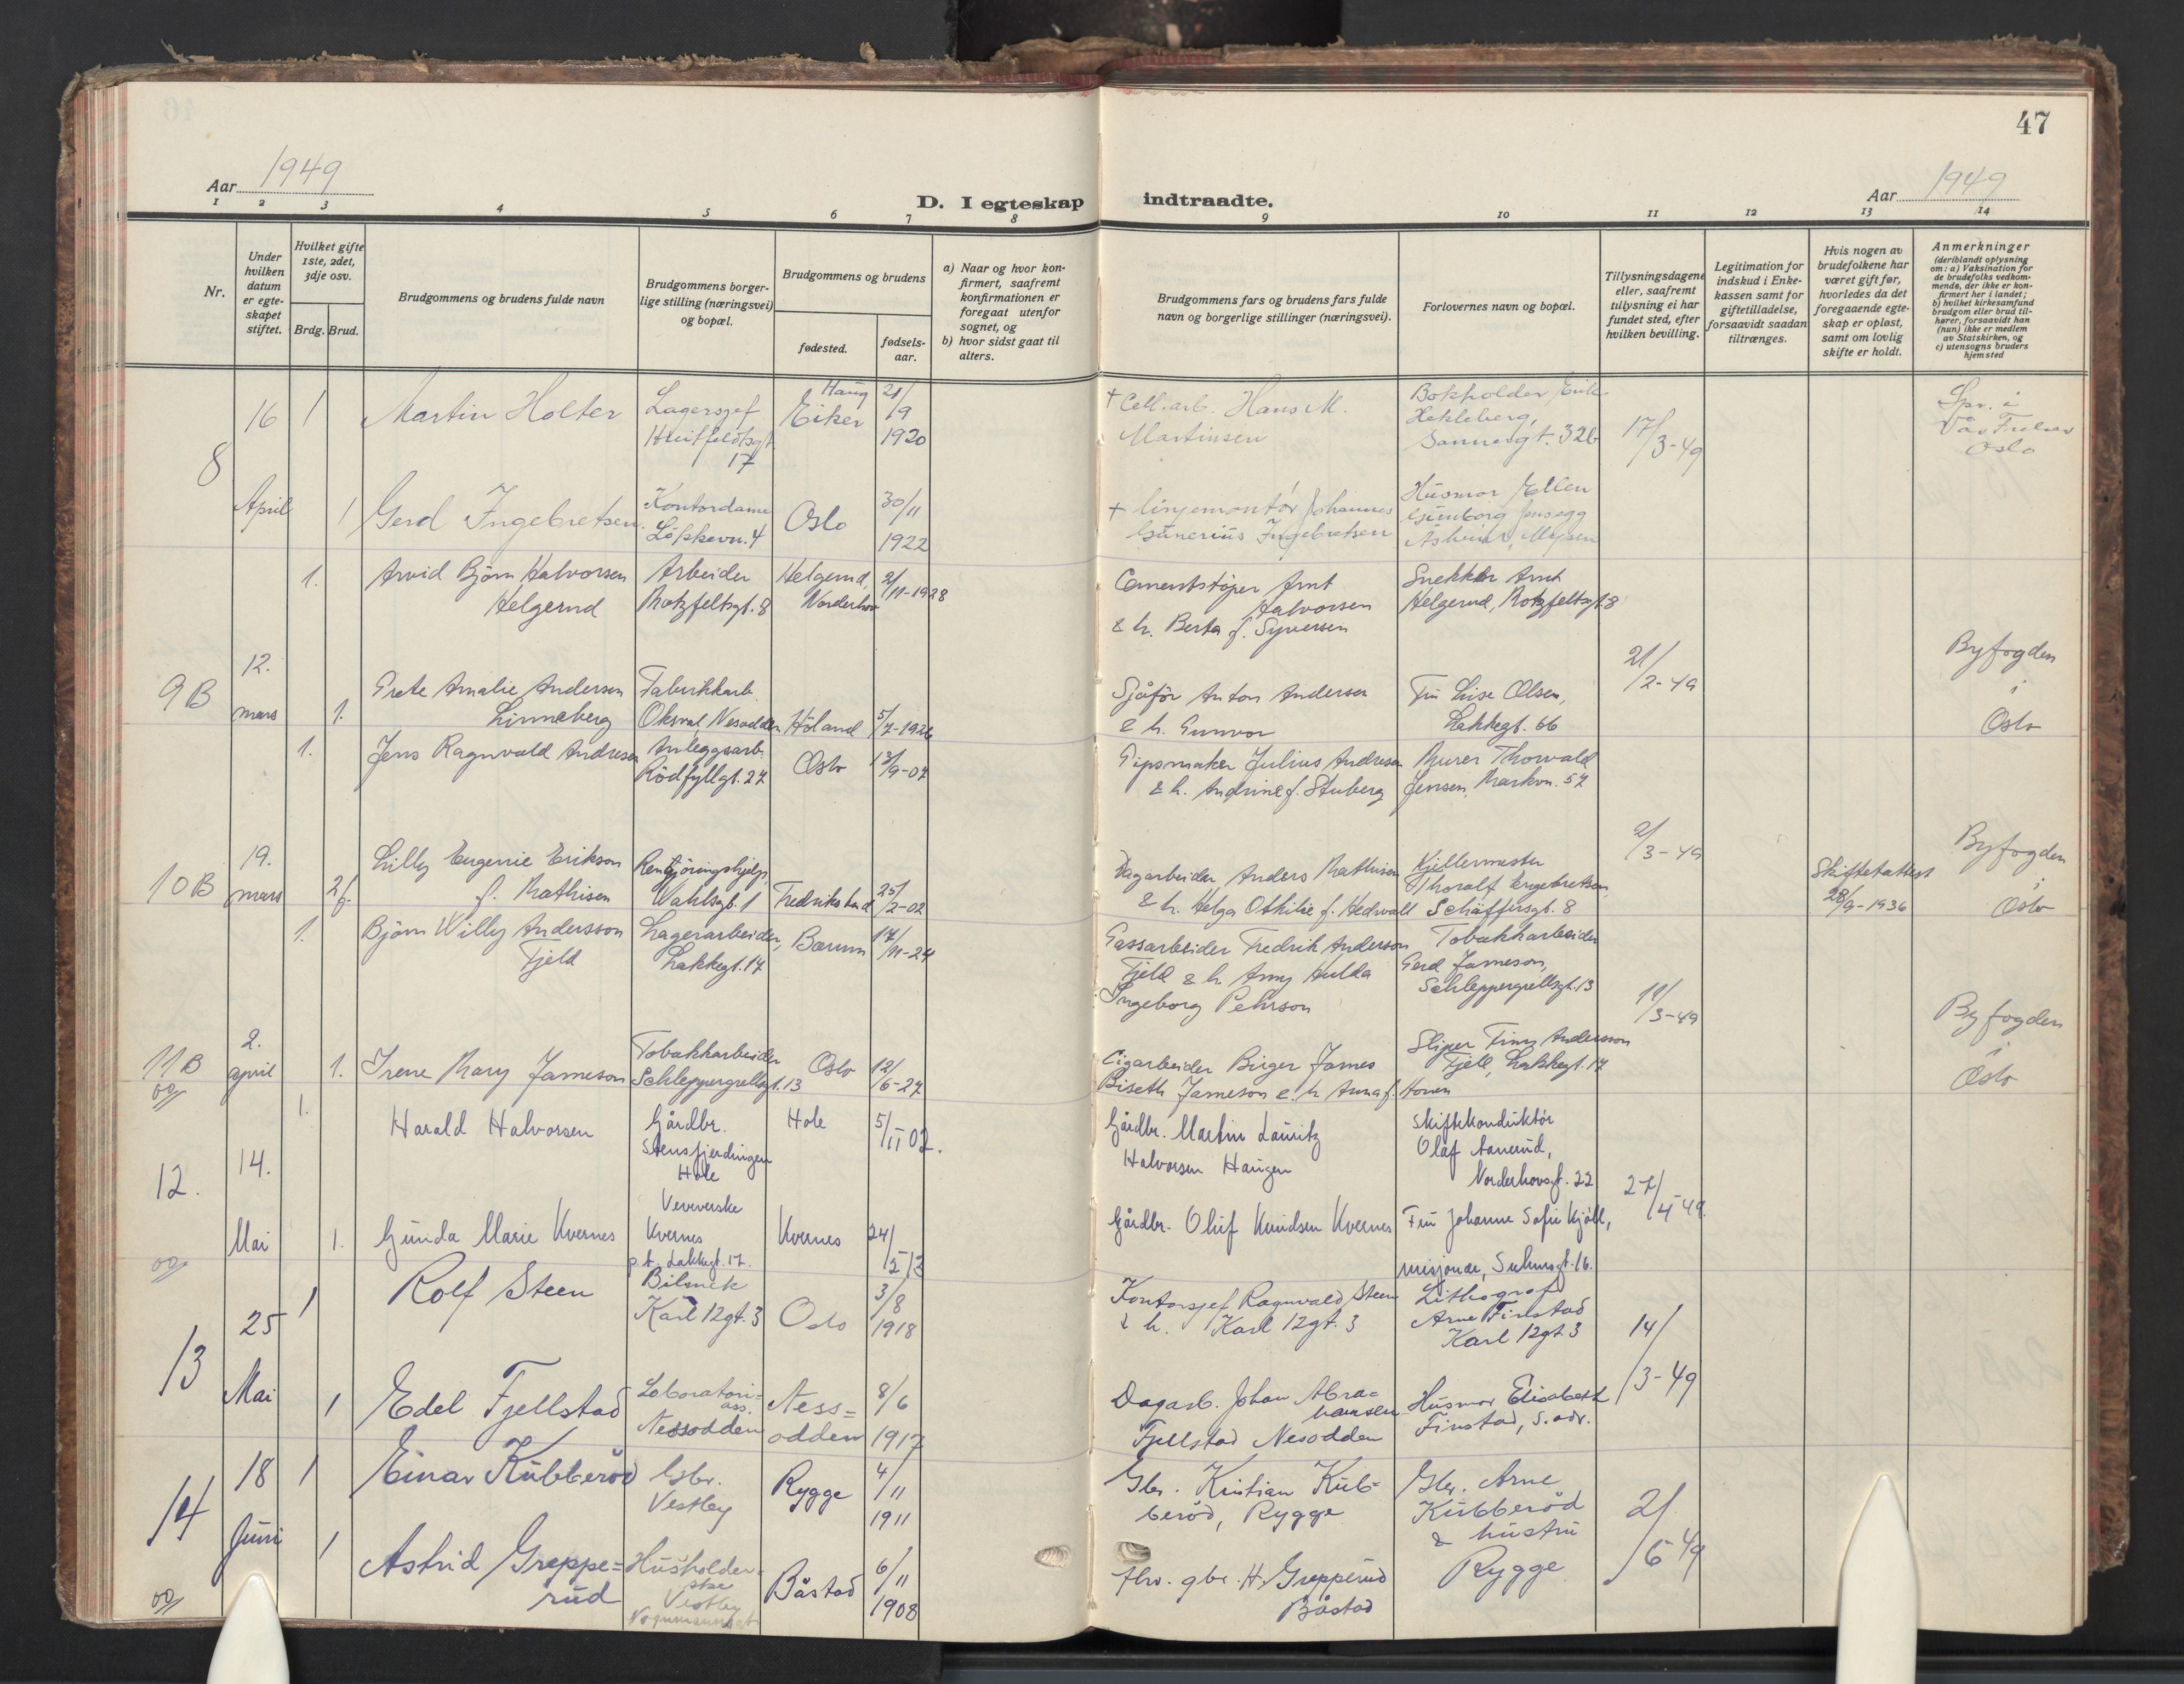 47
Aar 1949
D. I egteskap indtraadte.
Aar 1949
1 2 3 4 5 6 7 8 9 10 11 12 13 14
Nr.
Under hvilken datum er egteskapet stiftet.
Hvilket gifte 1ste, 2det, 3dje osv.
Brdg. Brud.
Brudgommens og brudens fulde navn
Brudgommens borgerlige stilling (næringsvei) og bopæl.
Brudgommens og brudens
fødested.
fødselsaar.
a) Naar og hvor konfirmert, saafremt konfirmationen er foregaat utenfor sognet, og
b) hvor sidst gaat til alters.
Brudgommens fars og brudens fars fulde navn og borgerlige stillinger (næringsvei).
Forlovernes navn og bopæl.
Tillysningsdagene eller, saafremt tillysning ei har fundet sted, efter hvilken bevilling.
Legitimation for indskud i Enkekassen samt for giftetilladelse, forsaavidt saadan tiltrænges.
Hvis nogen av brudefolkene har været gift før, hvorledes da det foregaaende egteskap er opløst, samt om lovlig skifte er holdt.
Anmerkninger (deriblandt oplysning om: a) Vaksination for de brudefolks vedkommende, der ikke er konfirmert her i landet; b) hvilket kirkesamfund brudgom eller brud tilhører, forsaavidt han (hun) ikke er medlem av Statskirken, og c) utensogns bruders hjemsted
8
16 April
1 Martin Holter
Lagersjef
Huitfeldtsgt. 17
Haug Eiker
21/19 1920
+ Cell.arb. Hans M.
Martinsen
Bokholder Erik
Hekleberg,
Sannergt. 32b
17/3-49
Spr. i
Vår Frelser
Oslo
1 Gerd Ingebretsen
Kontordame
Lökkevn. 4
Oslo
30/11 1922
+ linjemontör Johannes
Gunerius Ingebretsen
Husmor Ellen
Gunborg
Mysen
9B
12. mars
1. Arvid Björn Halvorsen
Helgerud
Arbeider
Motzfeltsgt. 8
Helgerud, Norderhov
2/11-1928
Cementstöper Arnt
Halvorsen
& h. Berta f. Syversen
Snekker Arnt
Helgerud, Motzfeltsgt. 8
21/2-49
Byfogden
i
Oslo
1. Grete Amalie Andersen
Linneberg
Fabrikkarb.
Oksval, Nesodden
Höland
5/7-1926
Sjåför Anton Andersen
& h. Gunvor
Fru Lise Olsen,
Lakkegt. 66
10B
19. mars
1. Jens Ragnvald Andresen
Anleggsarb.
Rödfyllgt. 27
Oslo
13/9-07
Gipsmaker Julius Andresen
& h. Andrine f. Stuberg
Murer Thorvald
Jensen, Markvn. 57
2/3-49
Byfogden
i
Oslo
2 f. Lilly Eugenie Erikson
f. Mathisen
Rengjöringshjelp,
Wahlsgt. 1
Fredrikstad
25/2-02
Dagarbeider Anders Mathisen
& h. Helga Othilie f. Hedvall
Kjellermester
Thoralf Engebretsen,
Schäffersgt. 8
Skifteattest
28/9-1936
11B
og
2. april
1. Björn Willy Andersson
Fjeld
Lagerarbeider,
Lakkegt. 17
Bærum
17/11-24
Gassarbeider Fredrik Anderson
Fjell & h. Anny Hulda
Ingeborg Pehrson
Tobakkarbeider
Gerd Jameson,
Schleppegrellsgt. 13
11/3-49
Byfogden
i
Oslo
1. Irene Mary Jameson
Tobakkarbeider
Schleppegrellsgt. 13
Oslo
12/6-27
Cigarbeider Birger James
Biseth Jameson & h. Anna f. Hoven
Sliper Finn Andersson
Fjell, Lakkegt. 17
12.
og
14. Mai
1. Harald Halvorsen
Gårdbr.
Stensfjerdingen
Hole
Hole
5/11 02.
Gårdbr. Martin Lauritz
Halvorsen Haugen
Skiftekonduktör
Olaf Aanerud,
Norderhovsgt. 22
27/4-49.
1. Gunda Marie Kvernes
Veverske
Kvernes
p.t. Lakkegt. 17.
Kvernes
24/5 13
Gårdbr. Oluf Knudsen Kvernes
Fru Johanne Sofie Kjöll,
misjonær, Suhmsgt. 16.
13
25 Mai
1 Rolf Steen
Bilmek
Karl 12gt. 3
Oslo
3/8 1918
Kontorsjef Ragnvald Steen
& h. Karl 12gt. 3
Lithograf
Arne Finstad
Karl 12gt. 3
14/3-49
1 Edel Fjellstad
Laboratori=
ass.
Nessodden
Ness=
odden
8/6 1917
Dagarb. Johan Abra=
hamsen
Fjellstad Nesodden
Husmor Elisabeth
Finstad, s. adr.
14
og
18 Juni
1 Einar Kubberöd
Gbr.
Vestby
Rygge
4/11 1911
Gbr. Kristian Kub-
beröd, Rygge
Gbr. Arne
Kubberöd
& hustru
Rygge
2/6 49
1 Astrid Greppe=
rud
Husholder=
ske
Vestby
Båstad
6/11 1908
fhv. gbr. H. Grepperud
Båstad